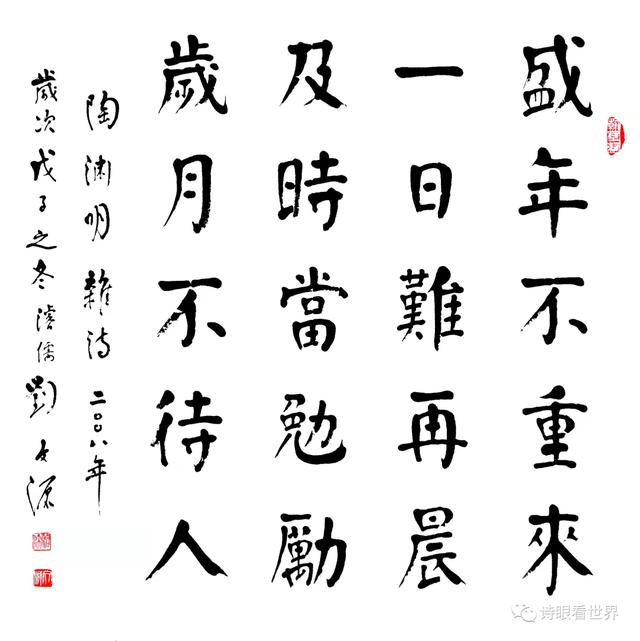 盛年不重來
一日難再晨
及時當勉勵
歲月不待人
陶渊明 雜诗 二〇〇八年
歲次戊子之冬 濬儒 劉文源
诗眼看世界